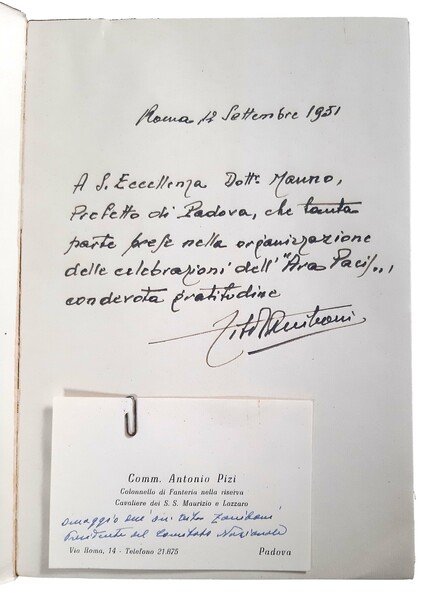 Roma 12 Settembre 1951
A S. Eccellenza Dott. Mauno,
Prefetto di Padova, che tanta
parte prese nella organizzazione
delle celebrazioni dell'"Ara Pacis",
con devota gratitudine
Tito Zaniboni
Comm. Antonio Pizi
Colonnello di Fanteria nella riserva
Cavaliere dei S. S. Maurizio e Lazzaro
omaggio dell'on. Tito Zaniboni
Presidente del Comitato Nazionale
Via Roma, 14 - Telefono 21.875 Padova